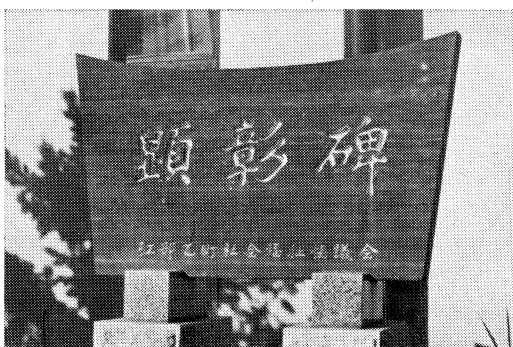 顕彰碑
江部乙町社会福祉協議会